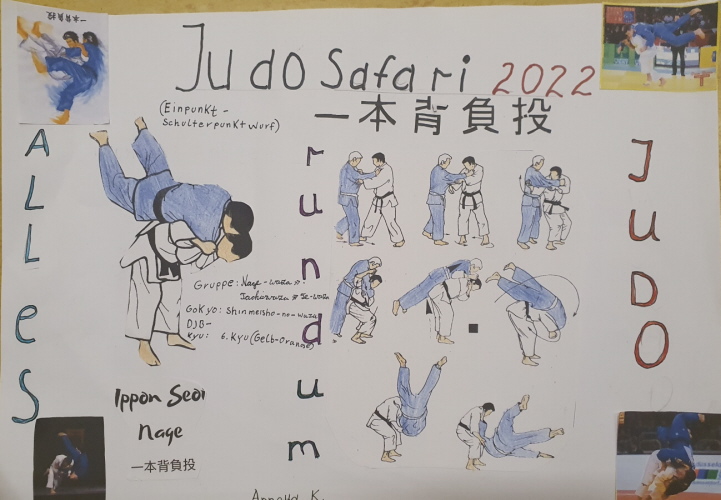 一本背負投
Judo Safari 2022
(Einpunkt-
Schulterpunktwurf)
一本背負投
ALLes
rundum
JUDO
Gruppe: Nage-waza
GoKyo: Shinmeisho-no-waza
DJB-
Kyu: 6. Kyu (Gelb-Orange)
Ippon Seoi
Nage
一本背負投
K.